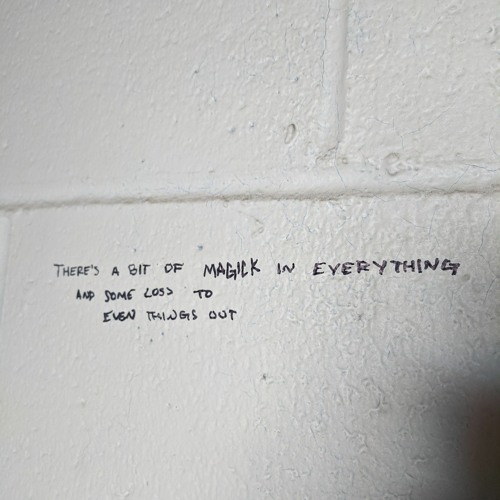 THERE'S A BIT OF MAGICK IN EVERYTHING
AND SOME LOSS TO
EVEN THINGS OUT